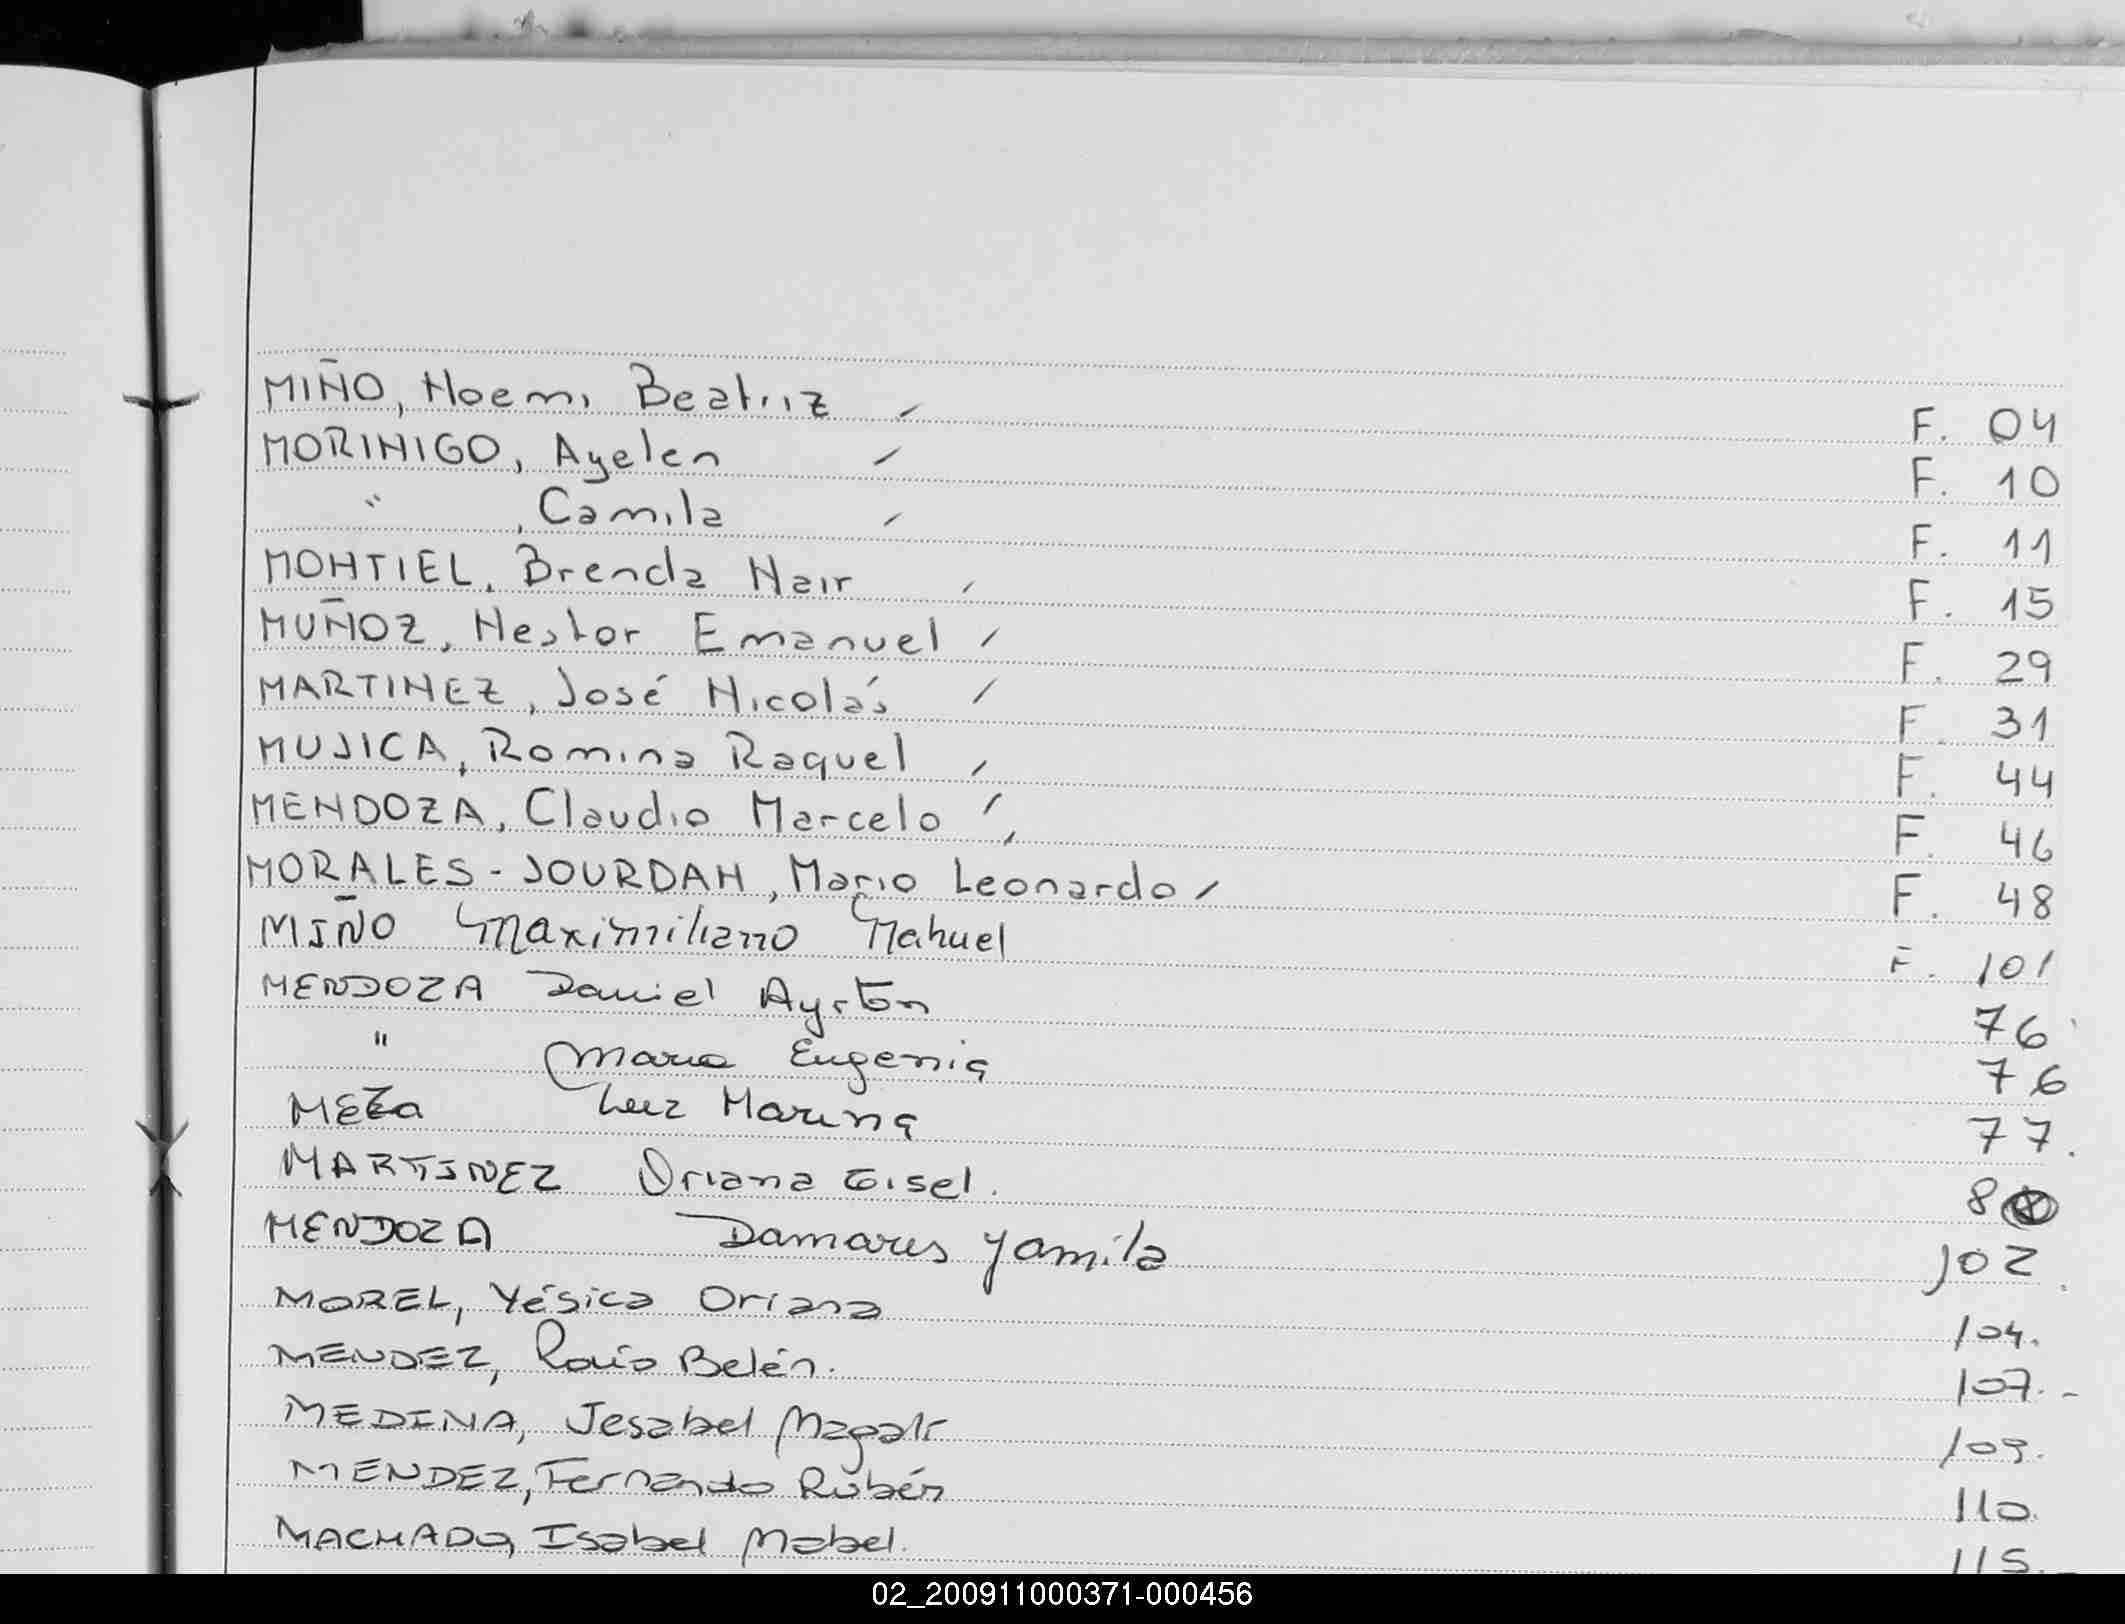 MIÑO, Noemi Beatriz F. 04
MORINIGO, Ayelen F. 10
" , Camila F. 11
MONTIEL, Brenda Nair F. 15
MUÑOZ, Nestor Emanuel F. 29
MARTINEZ, José Nicolás F. 31
MUJICA, Romina Raquel F. 44
MENDOZA, Claudio Marcelo F. 46
MORALES - JOURDAN, Mario Leonardo F. 48
MIÑO Maximiliano Nahuel F. 101
MENDOZA Daniel Ayrton 76
" Maria Eugenia 76
MEZa Luz Marina 77.
MARTINEZ Oriana Gisel. 8
MENDOZA Damaris Yamila 102.
MOREL, Yésica Oriana 104.
MENDEZ, Rocío Belén. 107.-
MEDINA, Jesabel Magali 109.
MENDEZ, Fernando Rubén 110.
MACHADO, Isabel Mabel. 115.-
02_200911000371-000456